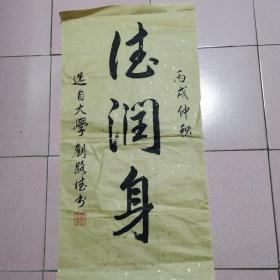 丙戌仲秋
德润身
选自大学 刘
德书